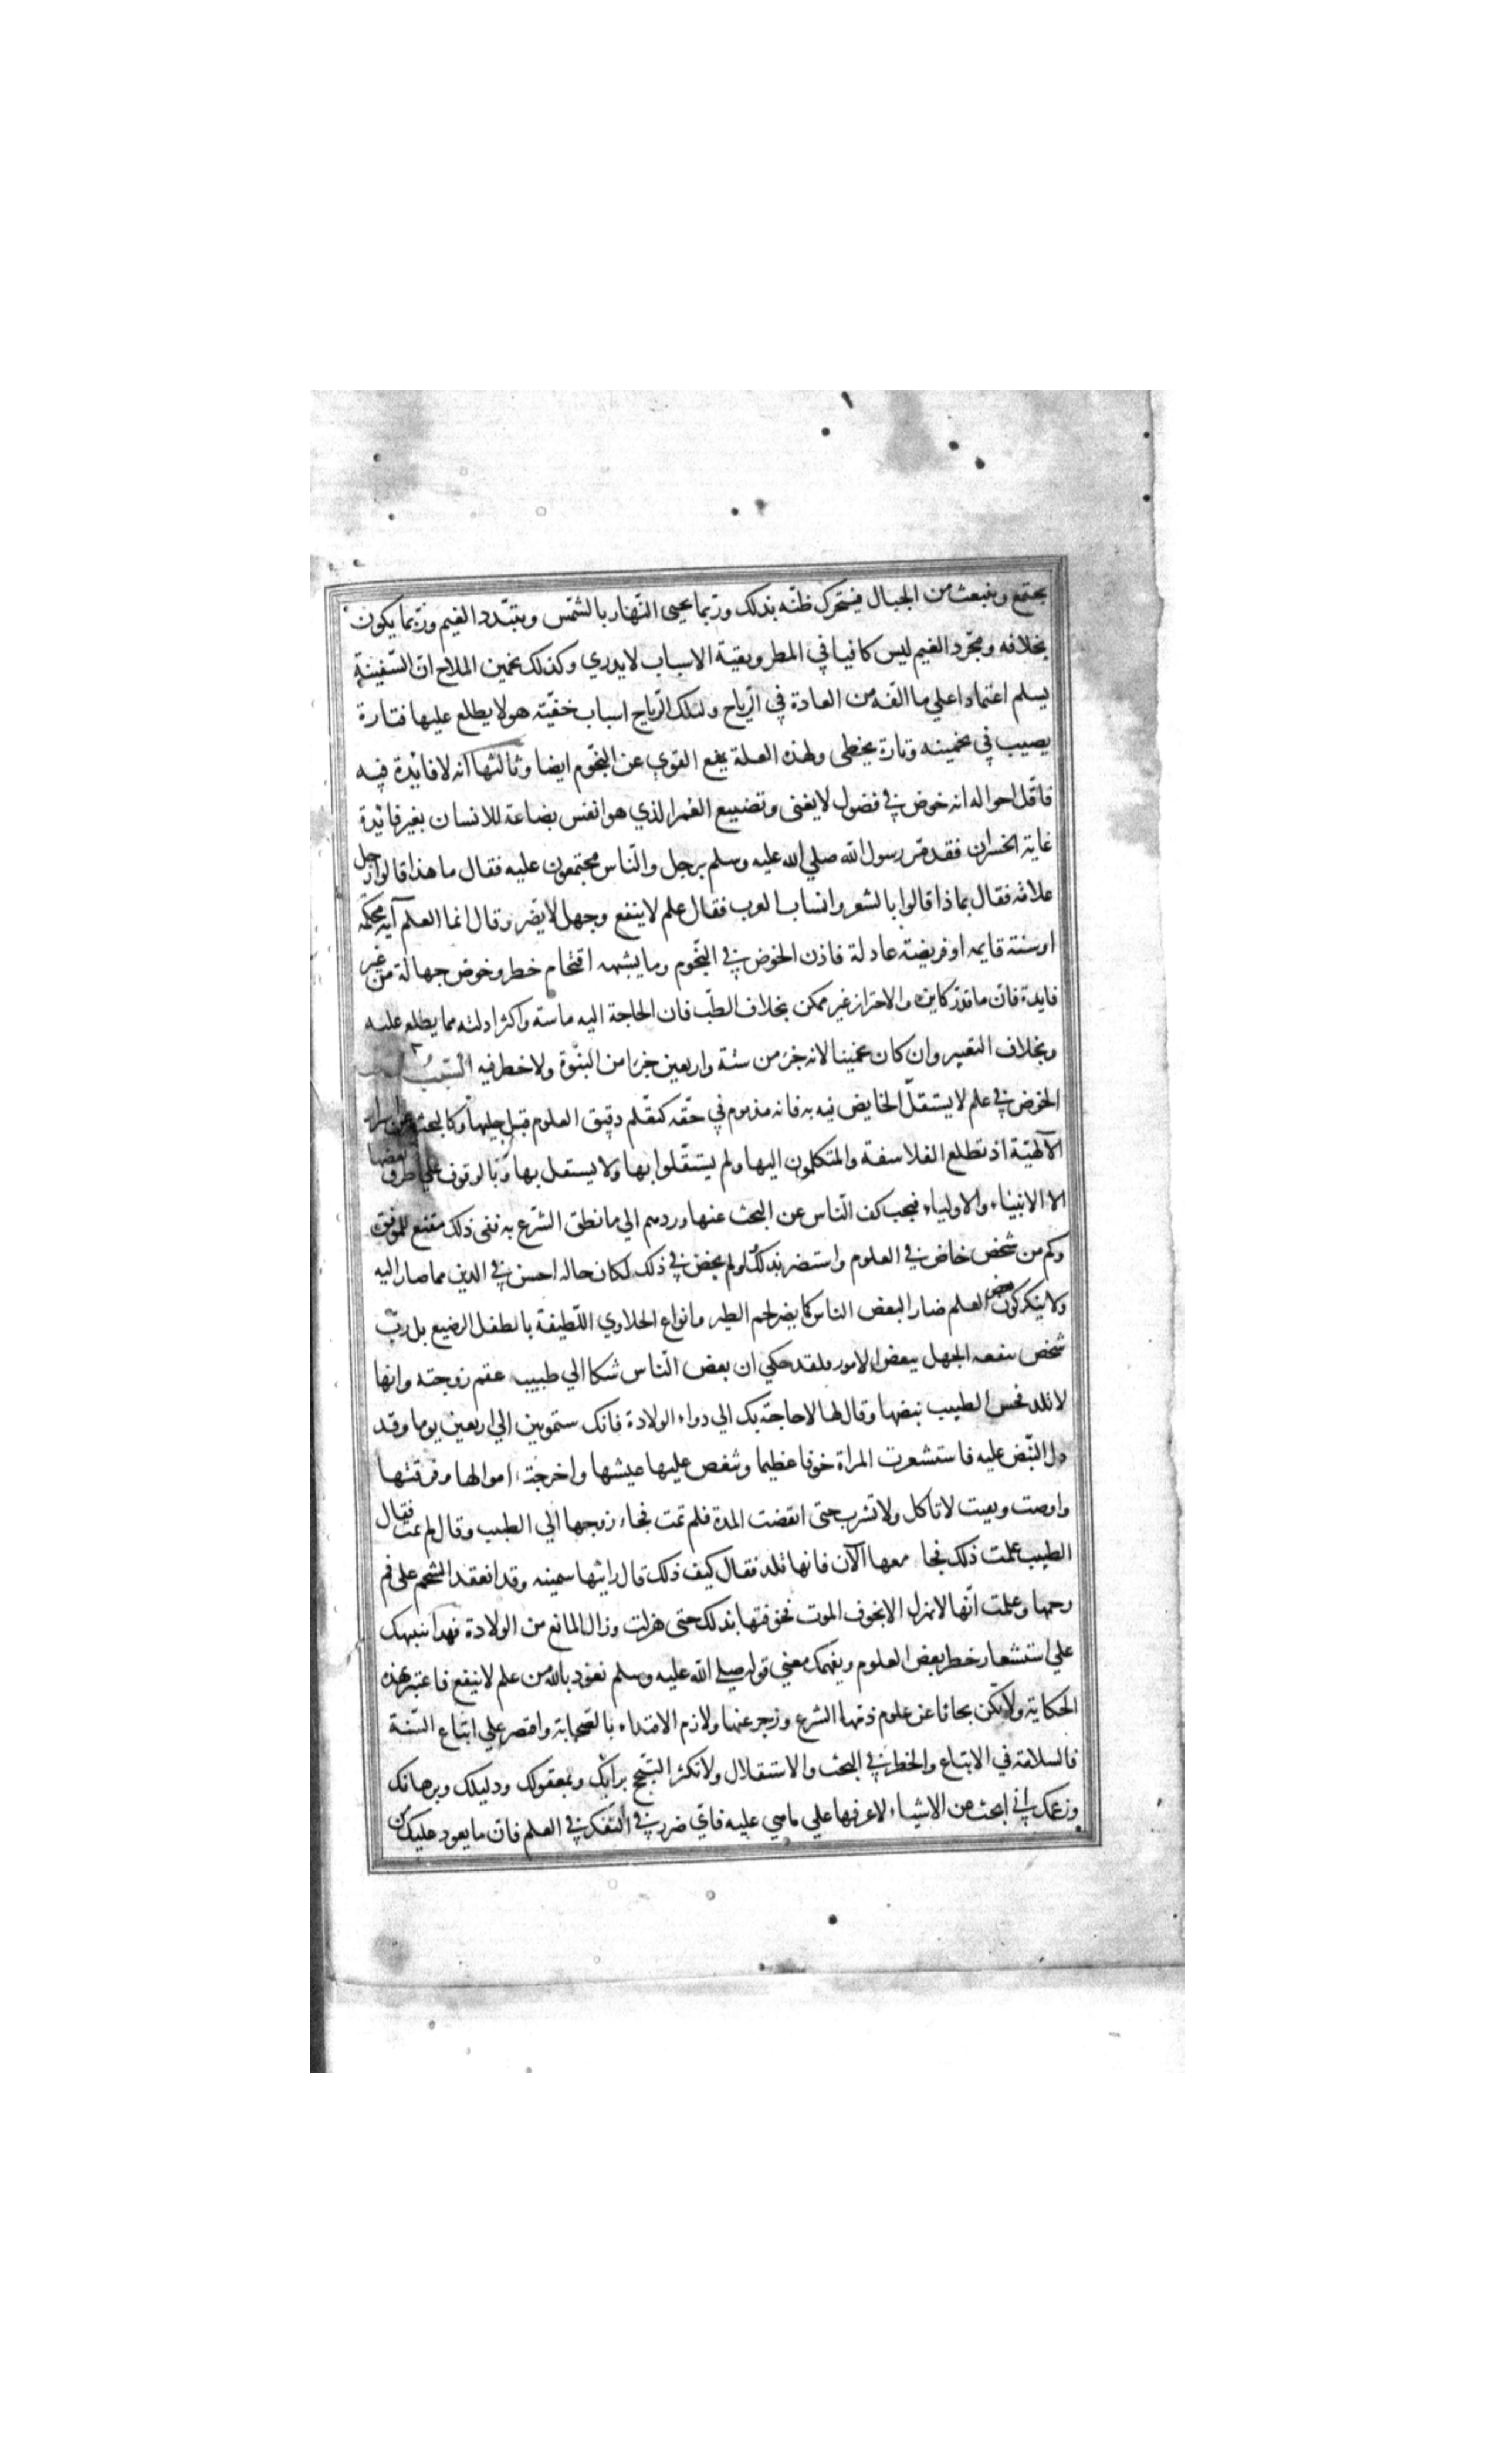 يجتمع وينبعث من الجبال فيتحرك ظنّه بذلك وربّما يحيى النّهار بالشّمس ويتبدّد الغيم وربّما يكون
بخلافه ومجرّد الغيم ليس كافيا في المطر وبقية الاسباب لا يدري وكذلك تخمين الملاح انّ السّفينة
يسلم اعتمادا على ما الفه من العادة في الرّياح ولتلك الرّياح اسباب خفيّة هو لا يطلع عليها فتارة
يصيب في تخمينه وتارة يخطى ولهذه العلة يمنع القوي عن النّجوم ايضا وثالثها انه لا فايدة فيه
فاقل احواله انه خوض في فضول لا يغنى وتضييع العمر الذي هو انفس بضاعة للانسان بغير فائدة
غاية الخسران فقد مرّ رسول الله صلي الله عليه وسلم برجل والنّاس مجتمعون عليه فقال ما هذا قالوا رجل
علامة فقال بماذا قالوا بالشعر وانساب العرب فقال علم لا ينفع وجهل لا يضر وقال انما العلم آية محكمة
او سنة قايمه او فريضة عادلة فاذن الخوض في النّجوم وما يشبهه اقتحام خطر وخوض جهالة من غير
فايدة فانّ ما قدّر كاين والاحتراز غير ممكن بخلاف الطبّ فان الحاجة اليه ماسة واكثر ادلته مما يطلع عليه
وبخلاف التعبير وان كان تخمينا لانه جزء من ستة واربعين جزءا من النبوّة ولا خطر فيه السّبب
الخوض في علم لا يستقلّ الخايض فيه به فانه مذموم في حقّه كتعلّم دقيق العلوم قبل جليها وكالبحث عن اسرار
الآلهيّة اذ تطلع الفلاسفة والمتكلمون اليها ولم يستقلّوا بها ولا يستقل بها وبالوقوف علي طرق بعضها
الا الانبياء والاولياء فيجب كف النّاس عن البحث عنها وردهم الي ما نطق الشّرع به ففى ذلك مقنع للموفق
وكم من شخص خاض في العلوم واستضر بذلك ولو لم يخض في ذلك لكان حاله احسن في الدين مما صار اليه
ولا ينكر كون بعض العلم ضارا لبعض الناس كما يضر لحم الطير وانواع الحلاوي اللّطيفة بالطفل الرضيع بل ربّ
شخص ينفعه الجهل ببعض الامور فلقد حكي ان بعض النّاس شكا الي طبيب عقم زوجته وانها
لا تلد فجس الطبيب نبضها وقال لها لا حاجة بك الي دواء الولادة فانك ستموتين الي اربعين يوما وقد
دل النّبض عليه فاستشعرت المراة خوفا عظيما وتنغص عليها عيشها واخرجت اموالها وفرقتها
واوصت وبقيت لا تاكل ولا تشرب حتى انقضت المدة فلم تمت فجاء زوجها الي الطبيب وقال لم تمت فقال
الطبيب علمت ذلك فجامعها الآن فانها تلد فقال كيف ذلك قال رايتها سمينه وقد انعقد الشّحم على فم
رحمها وعلمت انّها لا تهزل الا بخوف الموت فخوفتها بذلك حتى هزلت وزال المانع من الولادة فهذا ينبهك
علي استشعار خطر بعض العلوم ويفهمك معني قوله صلي الله عليه وسلم نعوذ بالله من علم لا ينفع فاعتبر بهذه
الحكاية ولا تكن بحاثا عن علوم ذمّها الشرع وزجر عنها ولازم الاقتداء بالصّحابة واقتصر علي اتباع السّنة
فالسلامة في الاتباع والخطر في البحث والاستقلال ولا تكثر التبجّح برايك وبمعقولك ودليلك وبرهانك
وزعمك انّي ابحث عن الاشياء لاعرفها علي ما هي عليه فايّ ضرر في التّفكر في العلم فانّ ما يعود عليك من